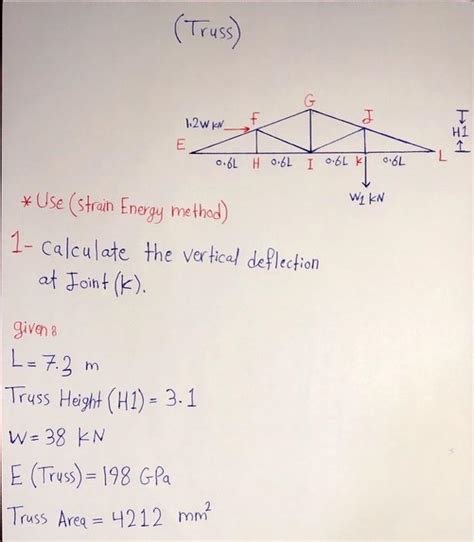 (Truss)
G
1.2W KN
F
J
H1
E
L
0.6L H 0.6L I 0.6L K 0.6L
W1 KN
* Use (Strain Energy method)
1- Calculate the vertical deflection
at Joint (K).
given:
L = 7.3 m
Truss Height (H1) = 3.1
W = 38 KN
E (Truss) = 198 GPa
Truss Area = 4212 mm²